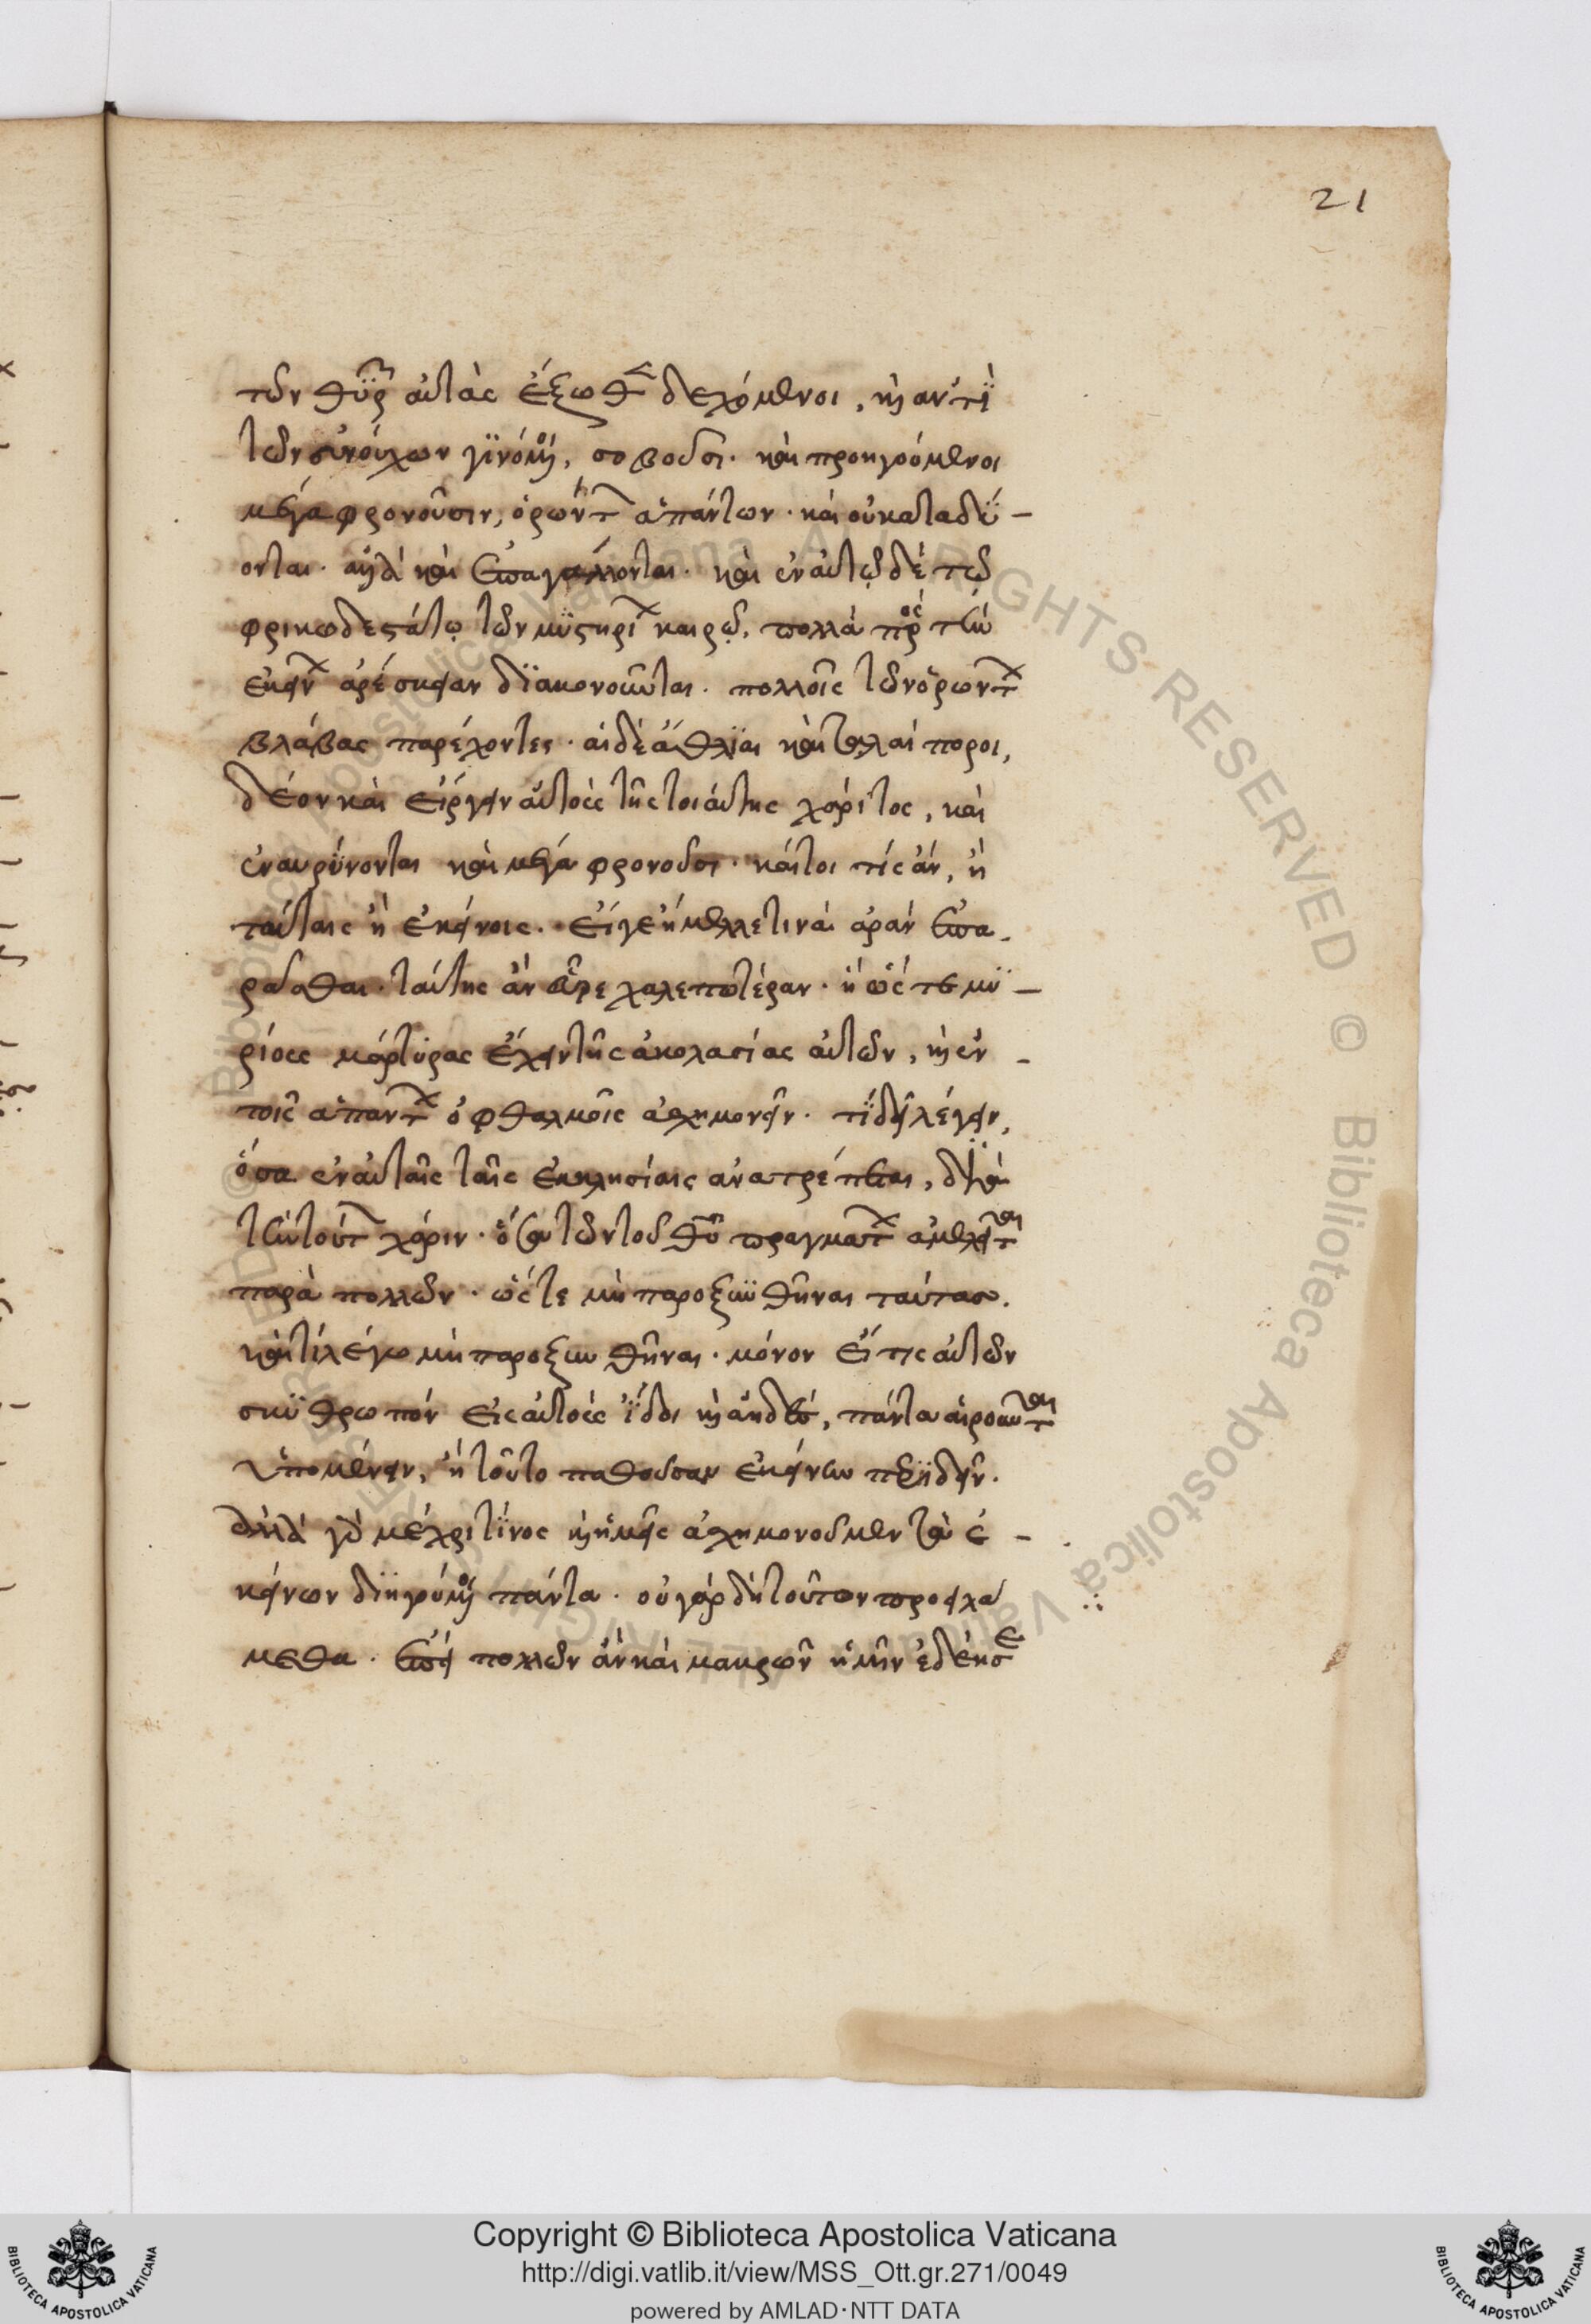 21
τῶν θυρῶν αὐτὰς ἔξωθεν δεχόμενοι, καὶ ἀντὶ
τῶν εὐνούχων γϊνόμενοι, σοβοῦσι. καὶ προηγούμενοι
μέγα φρονοῦσιν, ὁρώντων ἁπάντων. καὶ οὐ καταδύ-
ονται. ἀλλὰ καὶ ἐπαγάλλονται. καὶ ἐν αὐτῷ δὲ τῷ
φρικωδεστάτῳ τῶν μυστηρίων καιρῷ, πολλὰ πρὸς τὴν
ἐκείνων ἀρέσκειαν δϊακονοῦνται. πολλοῖς τῶν ὁρώντων
βλάβας παρέχοντες. αἱ δὲ ἄθλιαι καὶ ταλαίποροι,
δέον καὶ εἴργειν αὐτοὺς τῆς τοιαύτης χάριτος, καὶ
ἐναυρύνονται καὶ μέγα φρονοῦσι. καίτοι τίς ἂν, ἢ
ταύταις ἢ ἐκείνοις. εἴγε ἤμελλέ τινα ἀρὰν ἐπα-
ρᾶσθαι. ταύτης ἂν εὗρε χαλεπωτέραν. ἢ ὥστε μυ-
ρίους μάρτυρας ἔχειν τῆς ἀκολασίας αὐτῶν, καὶ ἐν
τοῖς ἁπάντων ὀφθαλμοῖς ἀσχημονεῖν. τί δεῖ λέγειν,
ὅσα ἐν αὐταῖς ταῖς ἐκκλησίαις ἀνατρέπεται, διὰ
τὴν τούτων χάριν. ὅσα τῶν τοῦ θεοῦ πραγμάτων ἀμελεῖται
παρὰ πολλῶν. ὥστε μὴ παροξυνθῆναι ταύτας.
καὶ τί λέγω μὴ παροξυνθῆναι. μόνον εἴ τις αὐτῶν
σκυθρωπόν εἰς αὐτοὺς ἴδοι καὶ ἀηδές, πάντα αἱροῦνται
ὑπομένειν, ἢ τοῦτο παθοῦσαν ἐκείνην περιϊδεῖν.
ἀλλὰ γὰρ μέχρι τίνος καὶ ἡμεῖς ἀσχημονοῦμεν τὰ ἐ-
κείνων διηγούμενοι πάντα. οὐ γὰρ δὴ τοῦτον προειλά
μεθα. ἐπεὶ πολλῶν ἂν καὶ μακρῶν ἡμῖν ἐδέησε
Copyright © Biblioteca Apostolica Vaticana
http://digi.vatlib.it/view/MSS_Ott.gr.271/0049
powered by AMLAD·NTT DATA